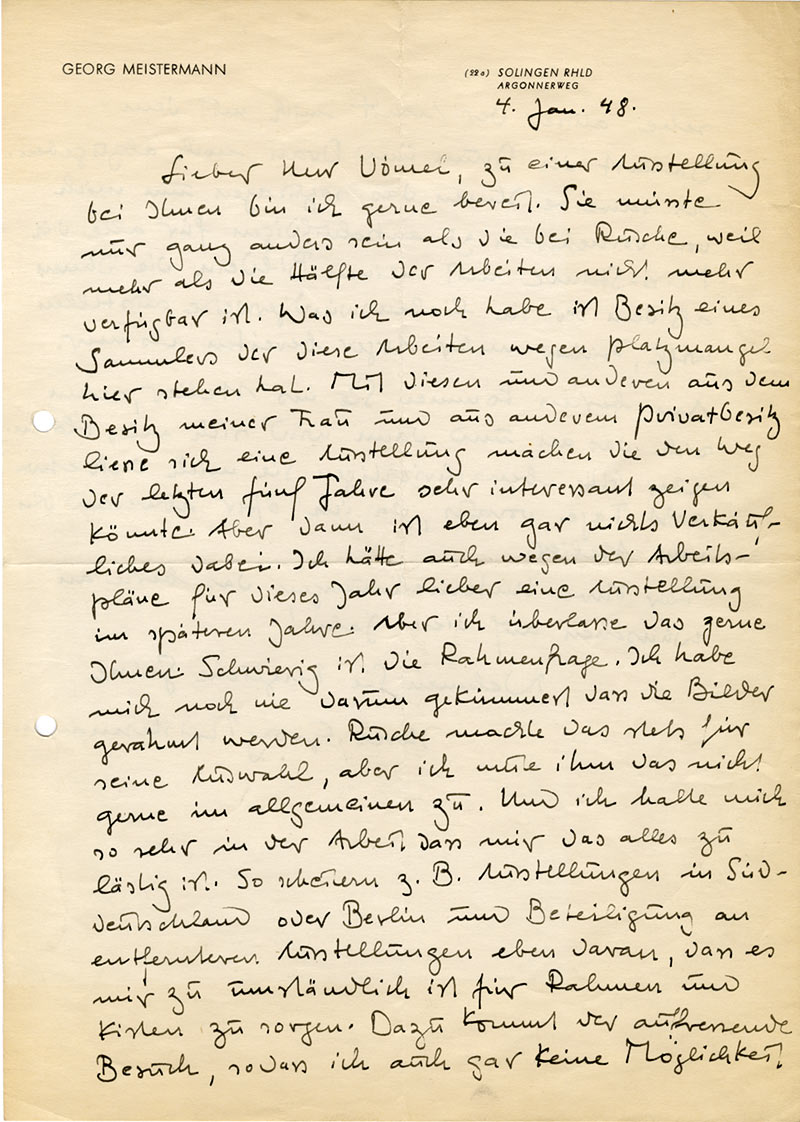 GEORG MEISTERMANN
(22a) SOLINGEN RHLD
ARGONNERWEG
4. Jan. 48.
Lieber Herr Vömel, zu einer Ausstellung
bei Ihnen bin ich gerne bereit. Sie müsste
nur ganz anders sein als die bei Rusche, weil
mehr als die Hälfte der Arbeiten nicht mehr
verfügbar ist. Was ich noch habe ist Besitz eines
Sammlers der diese Arbeiten wegen Platzmangel
hier stehen hat. Mit diesen und anderen aus dem
Besitz meiner Frau und aus anderem Privatbesitz
liesse sich eine Ausstellung machen die den Weg
der letzten fünf Jahre sehr interessant zeigen
könnte. Aber dann ist eben gar nichts Verkäuf-
liches dabei. Ich hätte auch wegen der Arbeits-
pläne für dieses Jahr lieber eine Ausstellung
im späteren Jahre. Aber ich überlasse das gerne
Ihnen. Schwierig ist die Rahmenfrage. Ich habe
mich noch nie darum gekümmert dass die Bilder
gerahmt werden. Rusche machte das stets für
seine Auswahl, aber ich mute ihm das nicht
gerne im allgemeinen zu. Und ich halte mich
so sehr in der Arbeit dass mir das alles zu
lästig ist. So scheitern z. B. Ausstellungen in Süd-
deutschland oder Berlin und Beteiligung an
entfernteren Ausstellungen eben daran, dass es
mir zu umständlich ist für Rahmen und
Kisten zu sorgen. Dazu kommt der auffressende
Besuch, sodass ich auch gar keine Möglichkeit